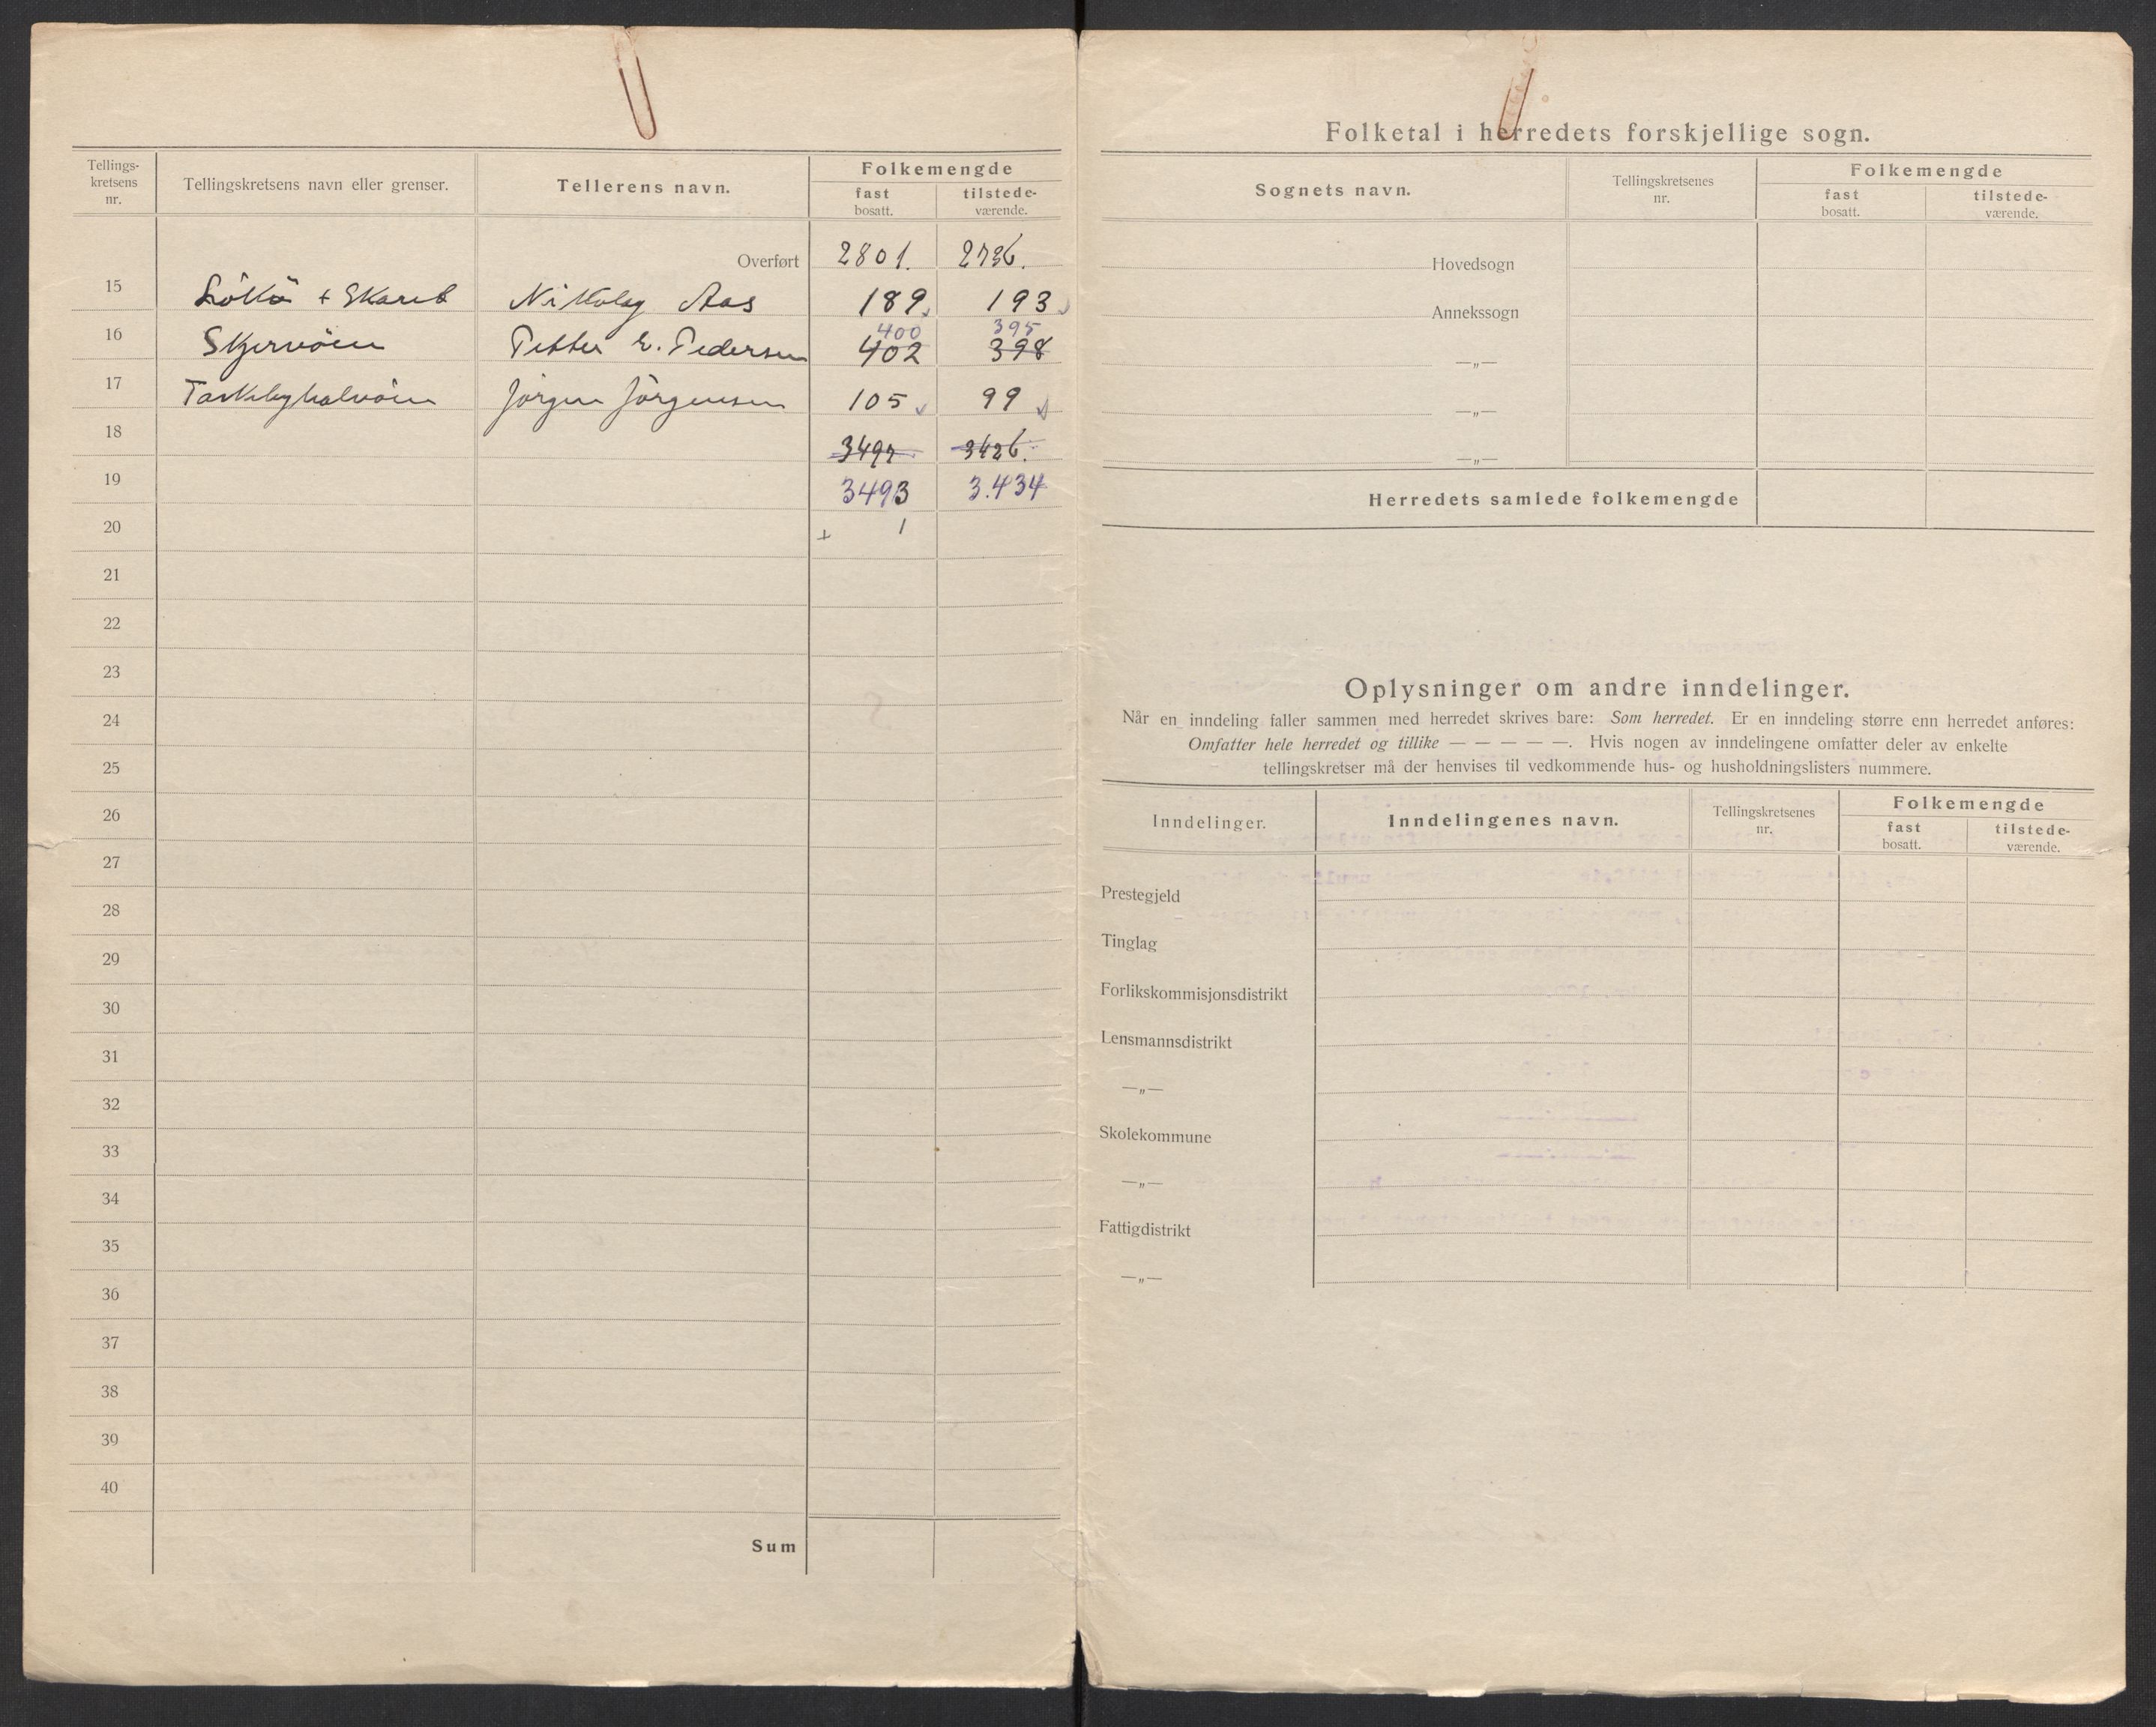 Tellings-kretsens nr. | Tellingskretsens navn eller grenser. | Tellerens navn. | Folkemengde
fast bosatt. | tilstede-værende.
Overført 2801. 2736.
15 Löksö + Skaret Nikolay Aas 189 193
400 395
16 Skjervöien Petter E. Pedersen 402 398
17 Jörgen Jörgensen 105 99
18 3497 3426.
19 3493 3.434
20 + 1
21
22
23
24
25
26
27
28
29
30
31
32
33
34
35
36
37
38
39
40
Sum
Folketal i herredets forskjellige sogn.
Sognets navn. | Tellingskretsenes nr. | Folkemengde
fast bosatt. | tilstede-værende.
Hovedsogn
Annekssogn
—„—
—„—
—„—
Herredets samlede folkemengde
Oplysninger om andre inndelinger.
Når en inndeling faller sammen med herredet skrives bare: Som herredet. Er en inndeling større enn herredet anføres:
Omfatter hele herredet og tillike — — — — —. Hvis nogen av inndelingene omfatter deler av enkelte
tellingskretser må der henvises til vedkommende hus- og husholdningslisters nummere.
Inndelinger. | Inndelingenes navn. | Tellingskretsenes nr. | Folkemengde
fast bosatt. | tilstede-værende.
Prestegjeld
Tinglag
Forlikskommisjonsdistrikt
Lensmannsdistrikt
—„—
Skolekommune
—„—
Fattigdistrikt
—„—